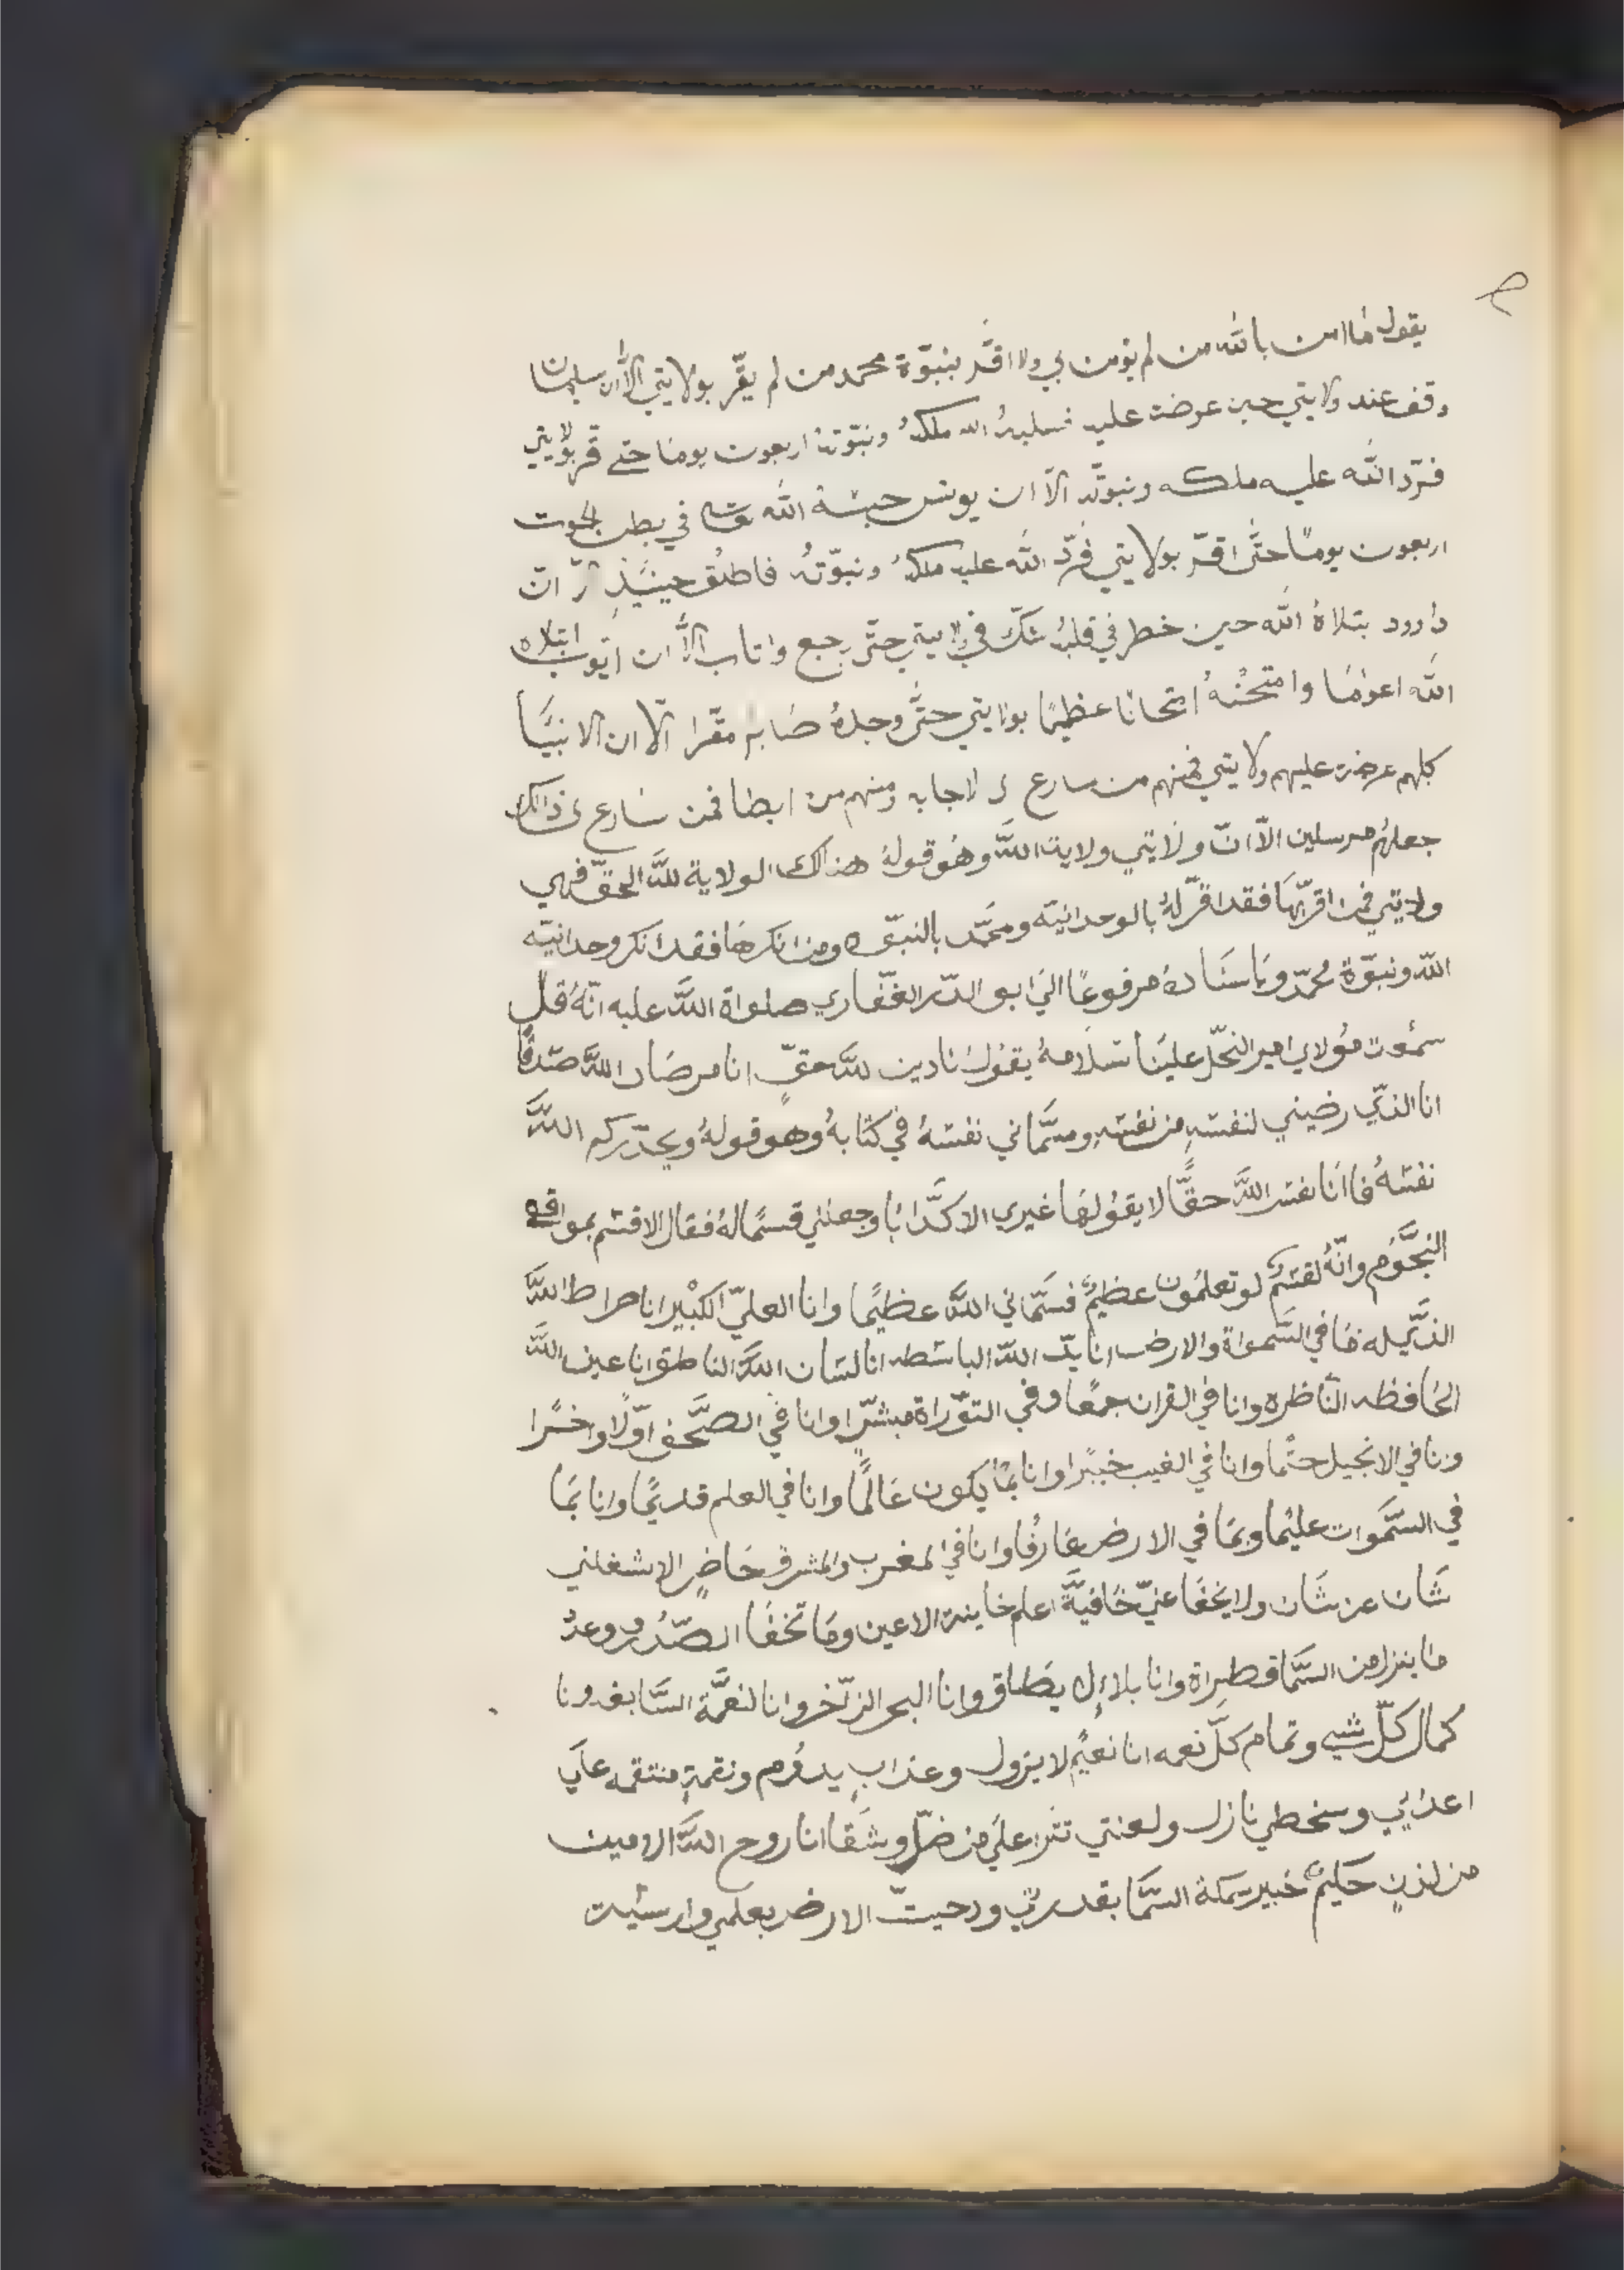 يقول ما امن بالله من لم يؤمن بي ولا اقر بنبوّة محمد من لم يقّر بولايتي الاّ ان سليمان
وقف عند ولايتي حين عرضت عليه فسلبهُ الله ملكهُ ونبوّتهُ اربعون يومًا حتى قرّ بولايتي
فردّ الله عليه ملكه ونبوتّه الاّ ان يونس حبسهُ الله في بطن الحوت
اربعون يومًا حتَّى اقرّ بولايتي فردّ الله عليه ملكهُ ونبوّتهُ فاطلق حينئذٍ انّ
داوود بتلاهُ الله حين خطر في قلبهُ شكّ في ولايتي حتَّى رجع واتاب الاَّ ان ايّوب ابتلاه
الله اعوامًا وامتحنهُ امتحانًا عظيمًا بولايتي حتَّى وجدهُ صابرا مقّرا الاّ ان الانبيَّا
كلهم عرضت عليهم ولايتي فمنهم من سارع الاجابه ومنهم من ابطا فمن سارع ذالك
جعلهُم مرسلين الاّ انّ ولايتي ولاية اللَّه وهُو قولهُ هنالك الولاية للَّه الحقّ فهي
ولايتي فمن اقرّ بهَا فقد اقرّ لهُ بالوحدانيّه ومحمَّد بالنبوّه ومن انكرهَا فقد انكر وحدانيّه
اللّه ونبوّة محمّد وباسنَادهُ مرفوعًا اليَ ابو الذّر الغفّاري صلواة اللَّه عليه انّهُ قال
سمعت مَوُلاي امير النحّل علينَا سَلامهُ يقُول انا دين للَّه حقيّ انا مرضَات اللَّه صَدقًا
انا الذّي رضيني لنفسَهِ من نفسَهِ ومسَّماني نفسَهُ في كتابهُ وهو قولهُ ويحذّركم اللَّه
نفسَهُ فاانَا نفسَ اللَّه حقًّا لا يقوُلهَا غيري الا كذَّابًا وجعلني قسَمًا لهُ فقال الا قسَم بمواقع
النجَّوُم وانّهُ لقسَمٌ لو تعلمُون عظيمٌ فسَمّاني اللَّه عظيمًا وانا العليّ الكبْير انا صراط اللَّه
الذَّي له مَا في السَّمواة والارض انا يدّ اللّه الباسَطه انا لسَان اللَّه الناطق انا عين اللَّه
الحافظه النّاظره وانا في القران جمعًا وفي التوّراة مبشرّا وانا في الصحَّف اوّلًا واخرًا
وانا في الانجيل حتمًا وانا في الغيب خبيًرا وانا بمَا يكون عَالمًا وانا في العلم قديمًا وانا بمَا
في السَّموات عليمًا وبمَا في الارض عَارفًا وانا في المغرب والمشرق حَاضر لا يشغلني
شَان عن شَان ولا يخفَا عنيّ خَافيَّة اعلم خاينة الاعين ومَا تخفَا الصّدُور وعدُ
ما ينزل من السَّما قطراة وانا بلاءٍ لا يطاق وانا البحر الزّخر وانا لنعمَّة السَّابغه وانا
كمال كلّ شي وتمام كلّ نعمه انا نعيُم لا يزول وعذابٍ يدوُم ونقمةٍ منتقمه عليَ
اعدائي وسخطي نازل ولعنتي تترا عليَ من ضلّ وشَقا انا روح اللَّه الامين
من لدنٍ حكيمٌ خبير سمكة السَّما بقدرتي ودحيتّ الارض بعلمي وارسئت